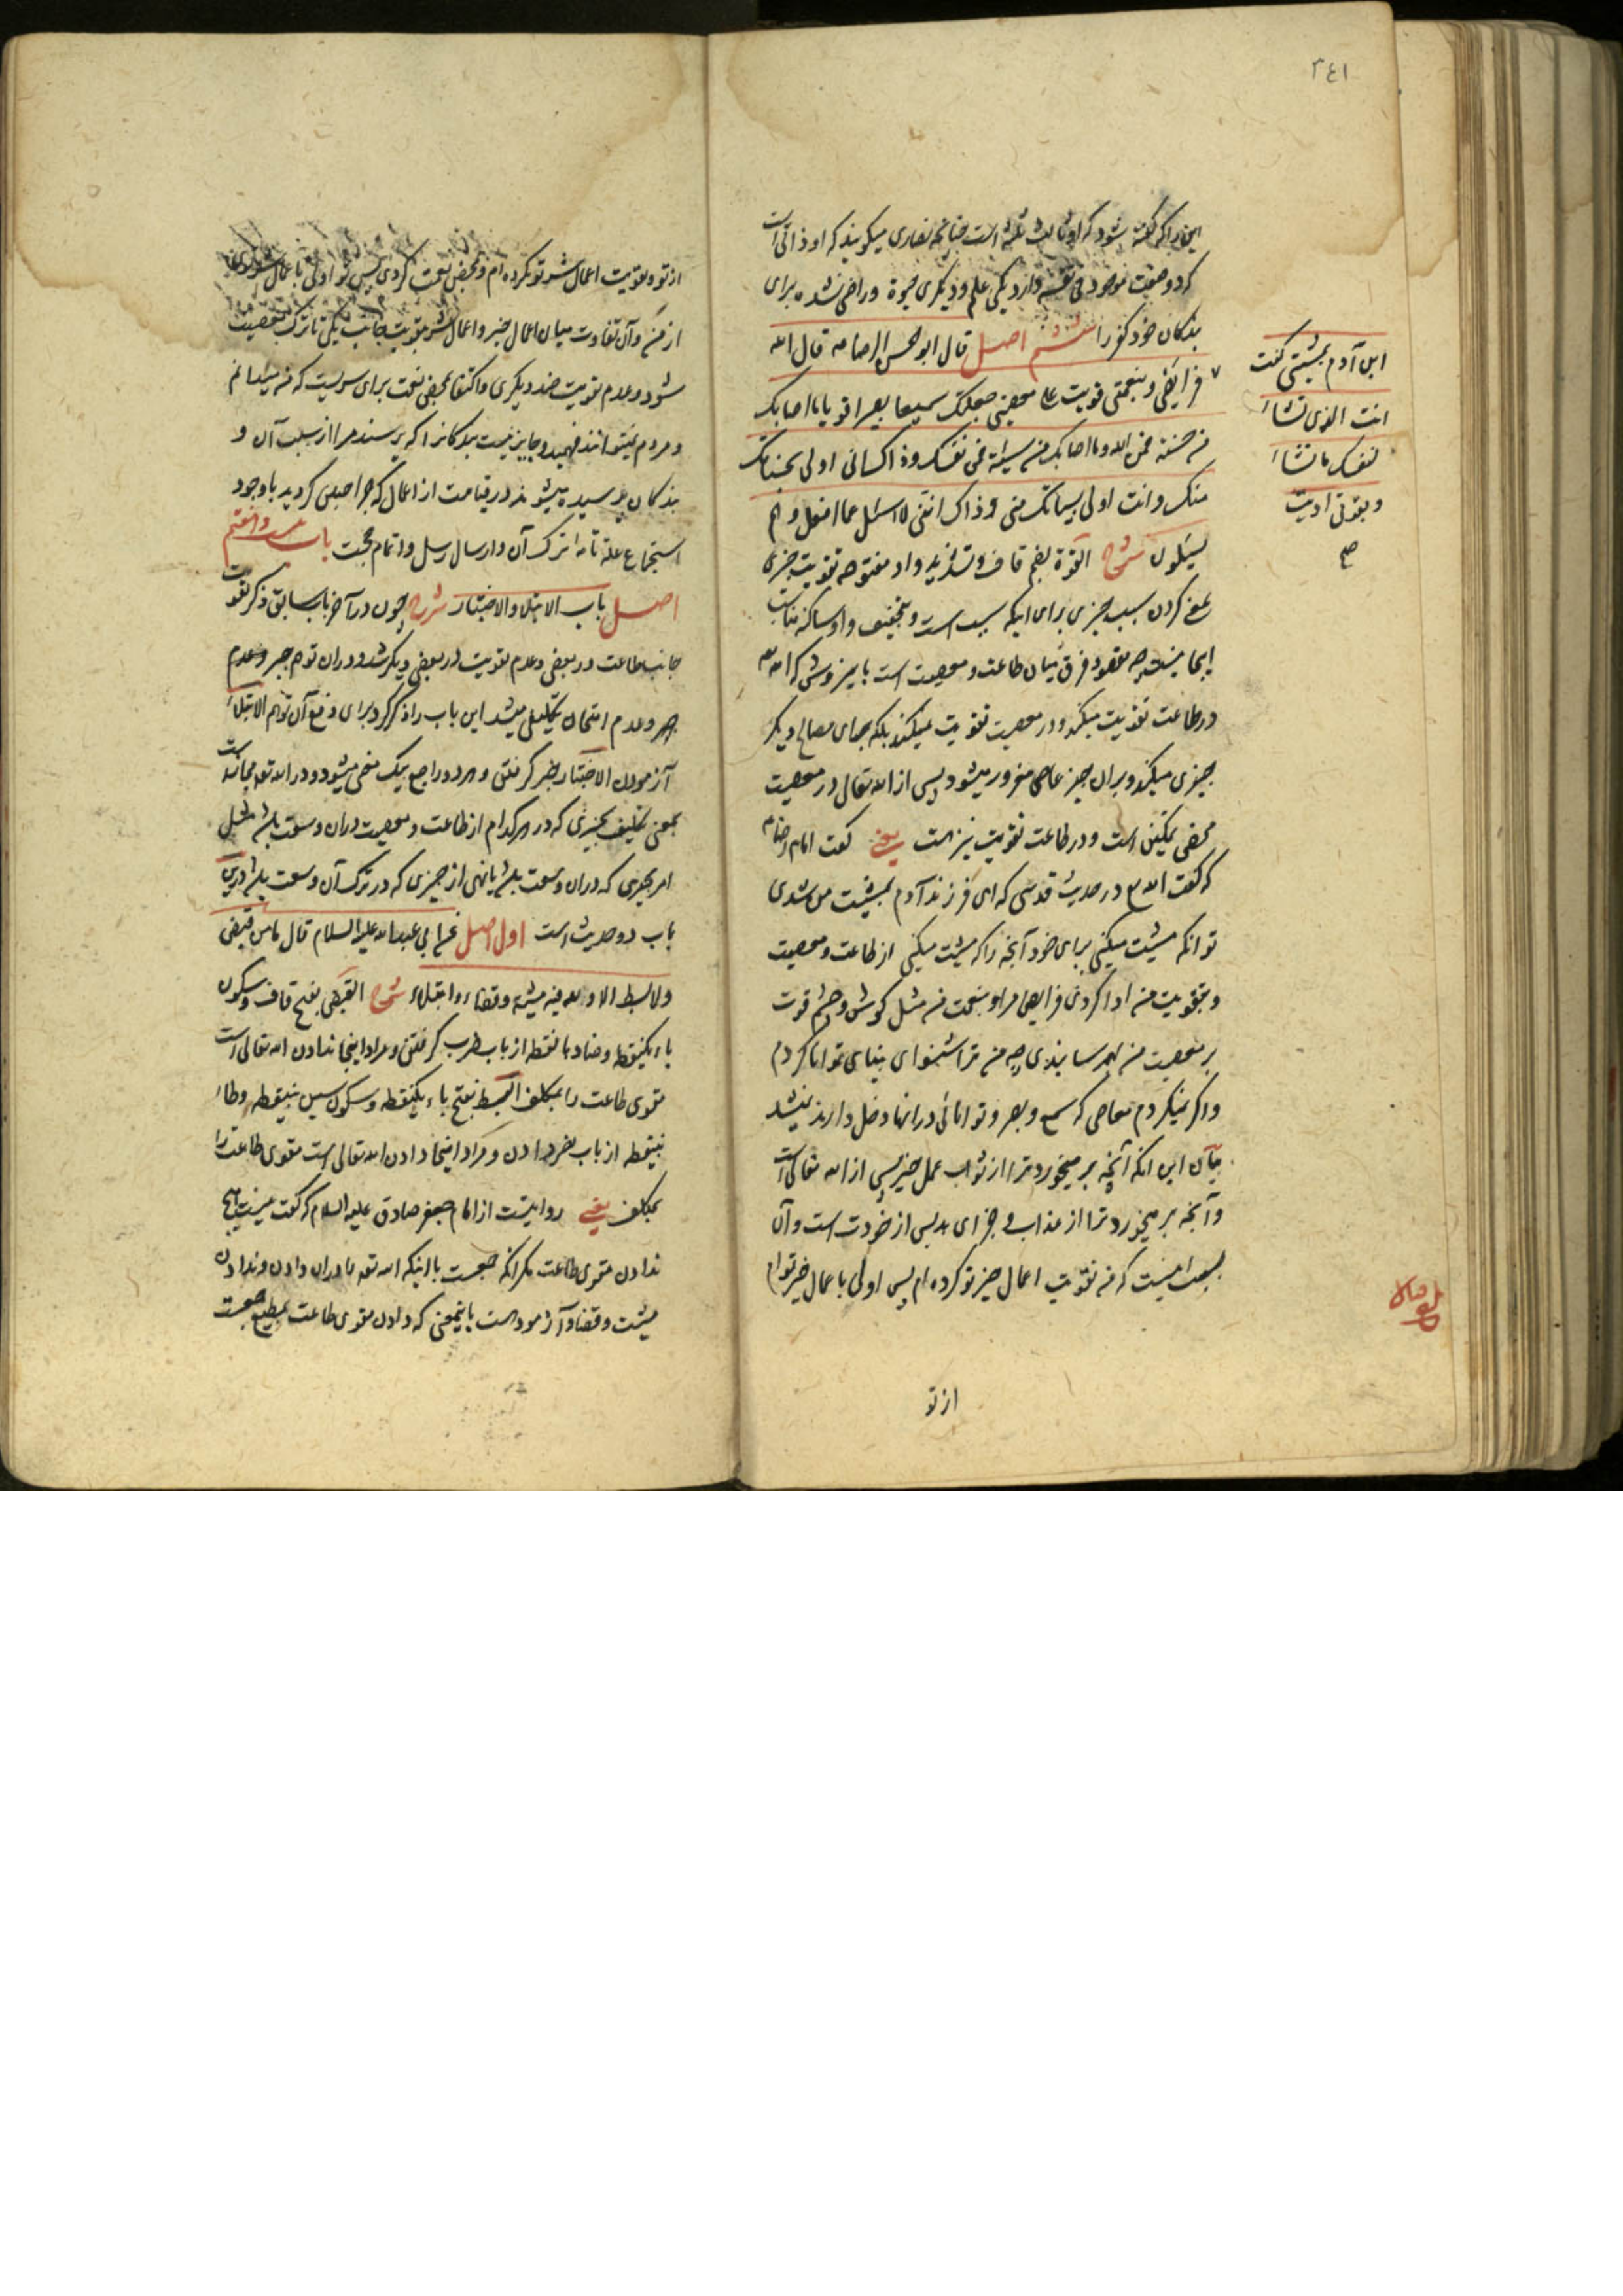 ٢٤١
که او ثالث ثلثه است چنانچه نصاری میکویند که او ذاتی است
که دو صفت موجود فی نفسه دارد یکی علم و دیکری حیوة و راضی نشده برای
بندکان خود کفر را ششم اصل قال ابو الحسن الرضا قال الله
ابن آدم بمشیتی کنت
انت الذی تشاء
لنفسک ما تشاء
و بقوتی ادیت
صح
فرایضی و بنعمتی قویت علی معصیتی جعلتک سمیعا بصیرا قویا ما اصابک
من حسنة فمن الله وما اصابک من سیئة فمن نفسک وذاک انی اولی بحسناتک
منک وانت اولی بسیئاتک منی وذاک اننی لا اسئل عما افعل وهم
یسئلون شرح القوة بضم قاف و تشدید واو مفتوحه تقویت چیزی
یعنی کردن سبب چیزی برای اینکه سبب است و بتخفیف واو ساکنه مناسب
اینجا نیست چه مقصود فرق میان طاعت و معصیت است باین روش که الله تعه
در طاعت تقویت میکند و در معصیت تقویت نمیکند بلکه بجهای مصالح دیکر
چیزی میکند و بر آن چیز عاصی مغرور میشود پس از الله تعالی در معصیت
محض تمکین است و در طاعت تقویت نیز هست یعنی کفت امام رضا
که کفت الله در حدیث قدسی که ای فرزند آدم بمشیت من شدی
تو آنکه مشیت میکنی برای خود آنچه را که مشیت میکنی از طاعت و معصیت
و بتقویت من ادا کردی فرایض مرا و بنعمت من مثل کوش و چشم قوت
بر معصیت من بهم رسانیدی چه من ترا شنوای بینای توانا کردم
و اکر نمیکردم معاصی که سمع و بصر و توانائی در آنها دخل دارند نمیشد
بیان این آنکه آنچه بر میخورد ترا از ثواب عمل خیر پس از الله تعالی است
و آنچه بر میخورد ترا از عذاب و جزای بد پس از خودت است و آن
بسبب اینست که من تقویت اعمال خیر تو کرده ام پس اولی باعمال خیر توام
از تو
از تو و تقویت اعمال شر تو نکرده ام و بمحض نعمت کردی پس تو اولی باعمال شر خودی
از من و آن تفاوت میان اعمال خیر و اعمال شر بتقویت جانب یکی تا ترک معصیت
شود و عدم تقویت ضد دیکری و اکتفا بمحض نعمت برای سریست که من میدانم
و مردم نمیتوانند فهمید و جایز نیست بندکانرا که پرسند مرا از سبب آن و
بندکان پرسیده میشوند در قیامت از اعمال که چرا چنین کردید با وجود
استجماع علة تامه ترک آن و ارسال رسل و اتمام حجت باب بیست و هفتم
اصل باب الابتلاء والاختبار شرح چون در آخر باب سابق ذکر تقویت
جانب طاعت در بعضی و عدم تقویت در بعضی دیکر شد و در آن توهم جبر و عدم
جبر و عدم امتحان بتکلیف میشد این باب را ذکر کرد برای دفع آن توهم الابتلاء
آزمودن الاختبار خبر کرفتن و هر دو راجع بیک معنی میشود و در الله تعه مجاز است
بمعنی تکلیف بچیزی که در هر کدام از طاعت و معصیت در آن وسعت باشد مثل
امر بچیزی که در آن وسعت باشد یا نهی از چیزی که در ترک آن وسعت باشد و درین
باب دو حدیث است اول اصل عن ابی عبد الله علیه السلام قال ما من قبض
ولا بسط الا ولله فیه مشیة وقضاء وابتلاء شرح القبض بفتح قاف و سکون
باء یکنقطه و ضاد با نقطه از باب ضرب کرفتن و مراد اینجا ندادن الله تعالی است
مقوی طاعت را بمکلف البسط بفتح باء یکنقطه و سکون سین بینقطه و طاء
بینقطه از باب نصر دادن و مراد اینجا دادن الله تعالی است مقوی طاعت را
بمکلف یعنی روایتست از امام جعفر صادق علیه السلام که کفت نیست هیچ
ندادن مقوی طاعت مکر آنکه جمعست با اینکه الله تعه را در آن دادن و ندادن
مشیت و قضا و آزمودنست باینمعنی که دادن مقوی طاعت بمطیع جمعست